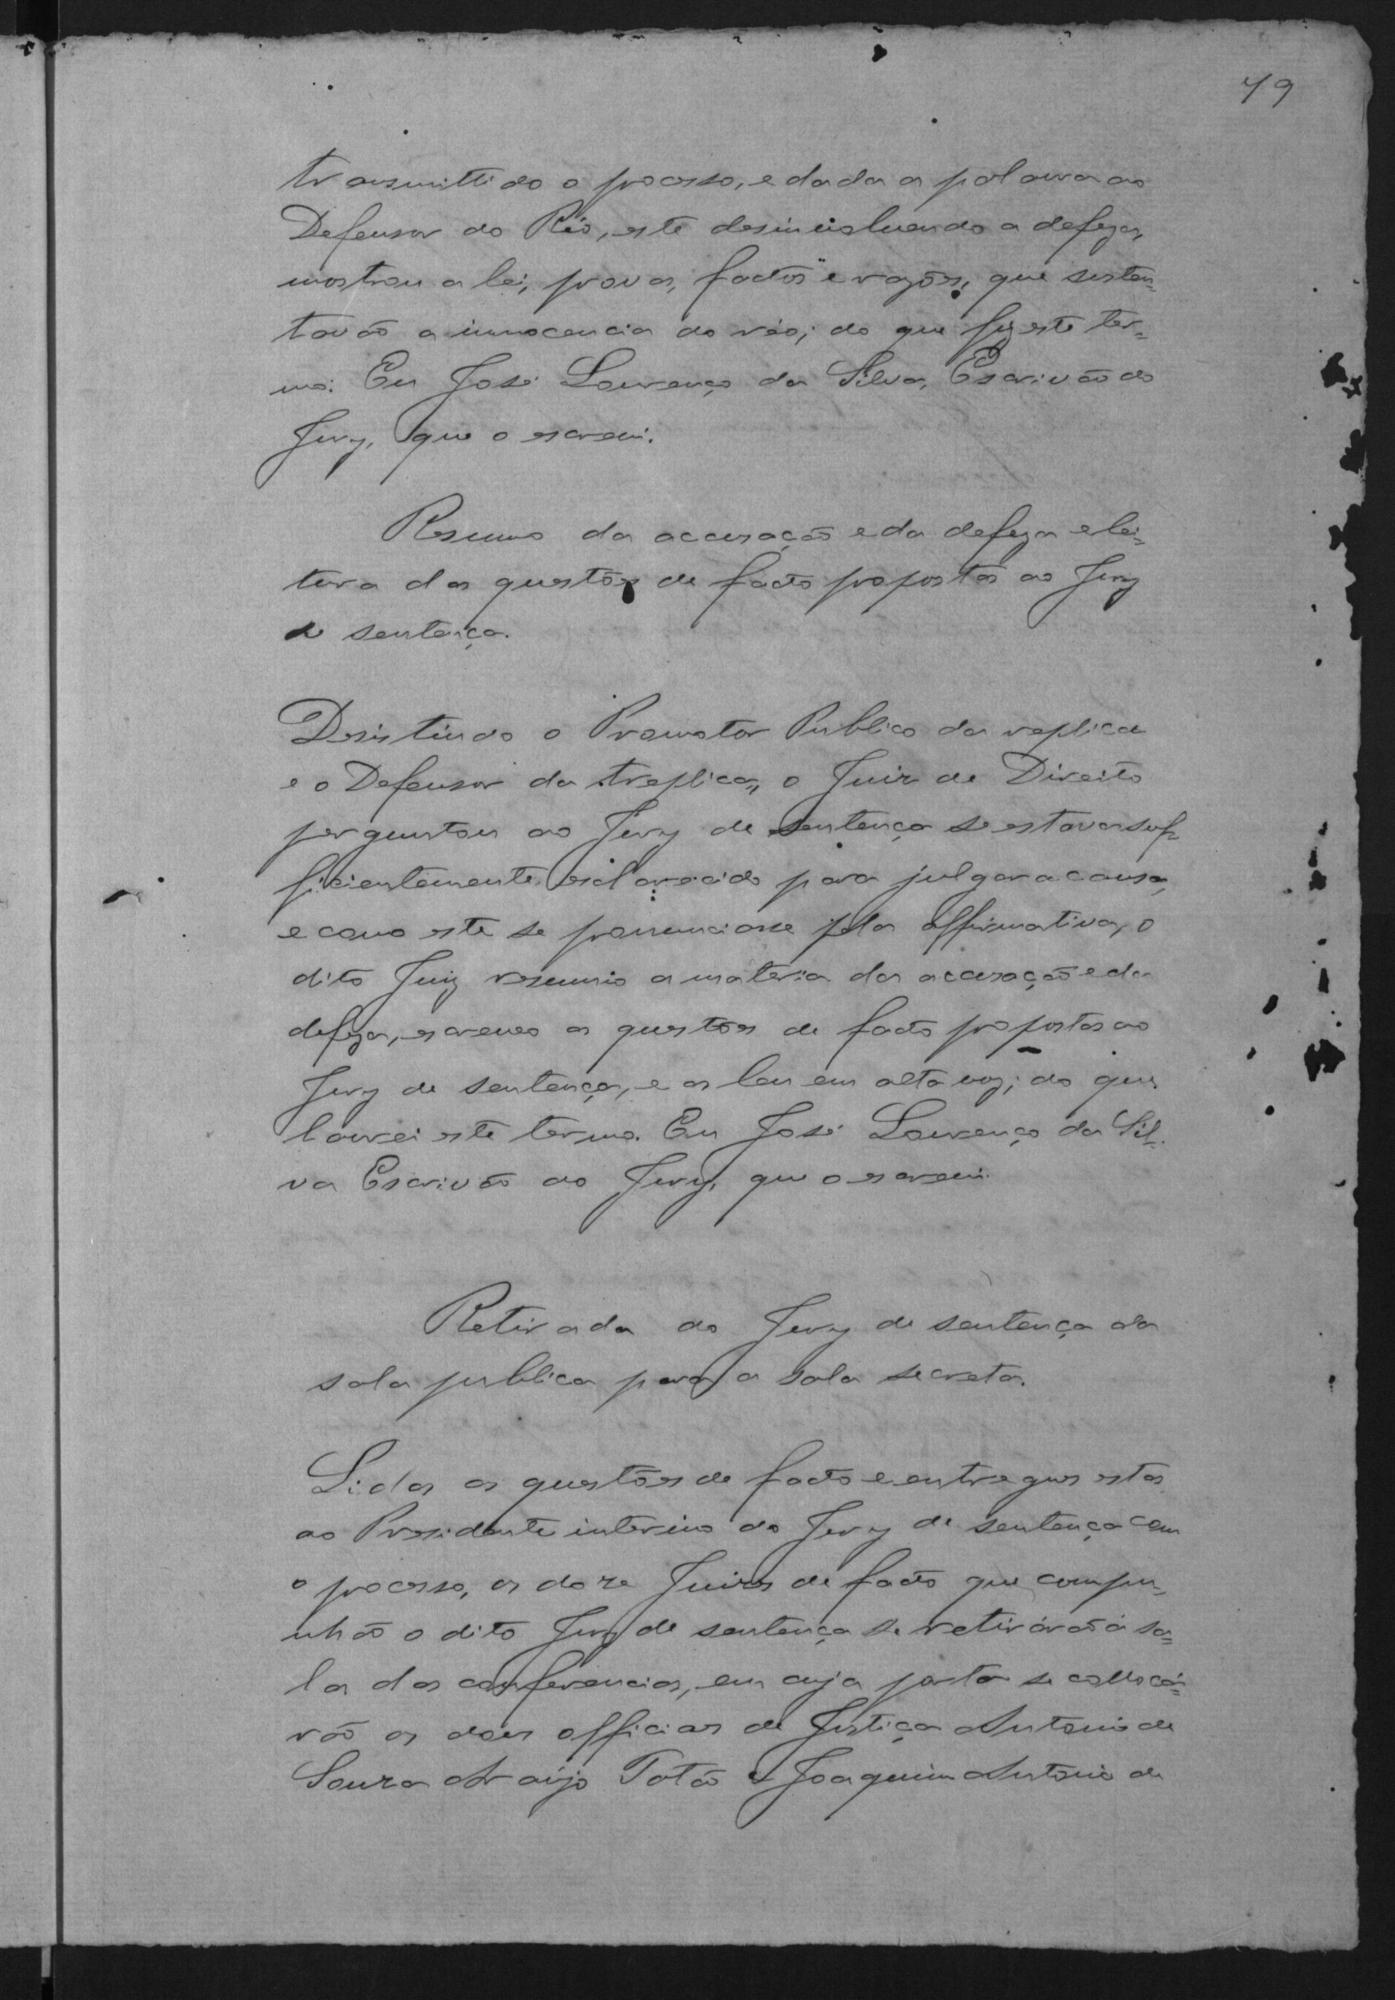 79
transmittido o processo, e dada a palavra ao
Defensor do Réo, este desinvolvendo a defeza,
mostrou a lei, provas, factos e razões, que susten-
tavão a innocencia do réo; do que fiz este ter-
mo. Eu José Lourenço da Silva, Escrivão do
Jury, que o escrevi.
Resumo da accusação e da defeza e lei-
tura das questões de facto propostas ao Jury
de sentença.
Desistindo o Promotor Publico da replica
e o Defensor da treplica, o Juiz de Direito
perguntou ao Jury de sentença se estava suf-
ficientemente esclarecido para julgar a causa,
e como este se pronunciasse pela affirmativa, o
dito Juiz resumio a materia da accusação e da
defeza, escreveo as questões de facto propostas ao
Jury de sentença, e as leu em alta voz; do que
lavrei este termo. Eu José Lourenço da Sil-
va Escrivão do Jury, que o escrevi.
Retirada do Jury de sentença da
sala publica para a sala secreta.
Lidas as questões de facto e entregues estas
ao Presidente interino do Jury de sentença com
o processo, os doze Juizes de facto que compu-
nhão o dito Jury de sentença se retirárão á sa-
la das conferencias, em cuja porta se collocá-
rão os dous officiaes de Justiça Antonio de
Souza Araújo Totão e Joaquim Antonio de